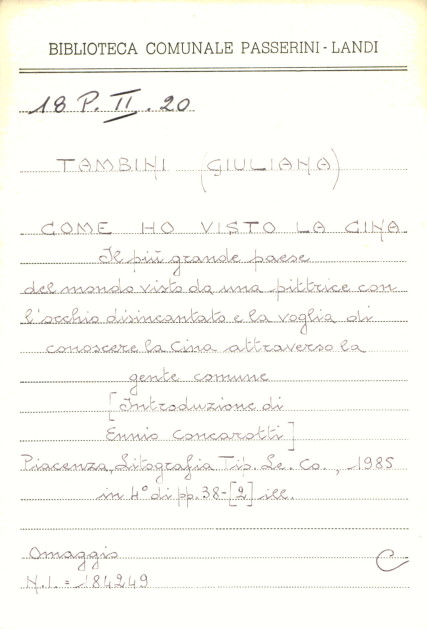 BIBLIOTECA COMUNALE PASSERINI-LANDI
18 P. II. 20
TAMBINI (GIULIANA)
COME HO VISTO LA CINA
Il più grande paese
del mondo visto da una pittrice con
l'occhio disincantato e la voglia di
conoscere la Cina attraverso la
gente comune
[Introduzione di
Ennio Concarotti]
Piacenza, Litografia Tip. Le. Co., 1985
in 4° di pp. 38-[2] ill.
Omaggio C
N.I. = 184249